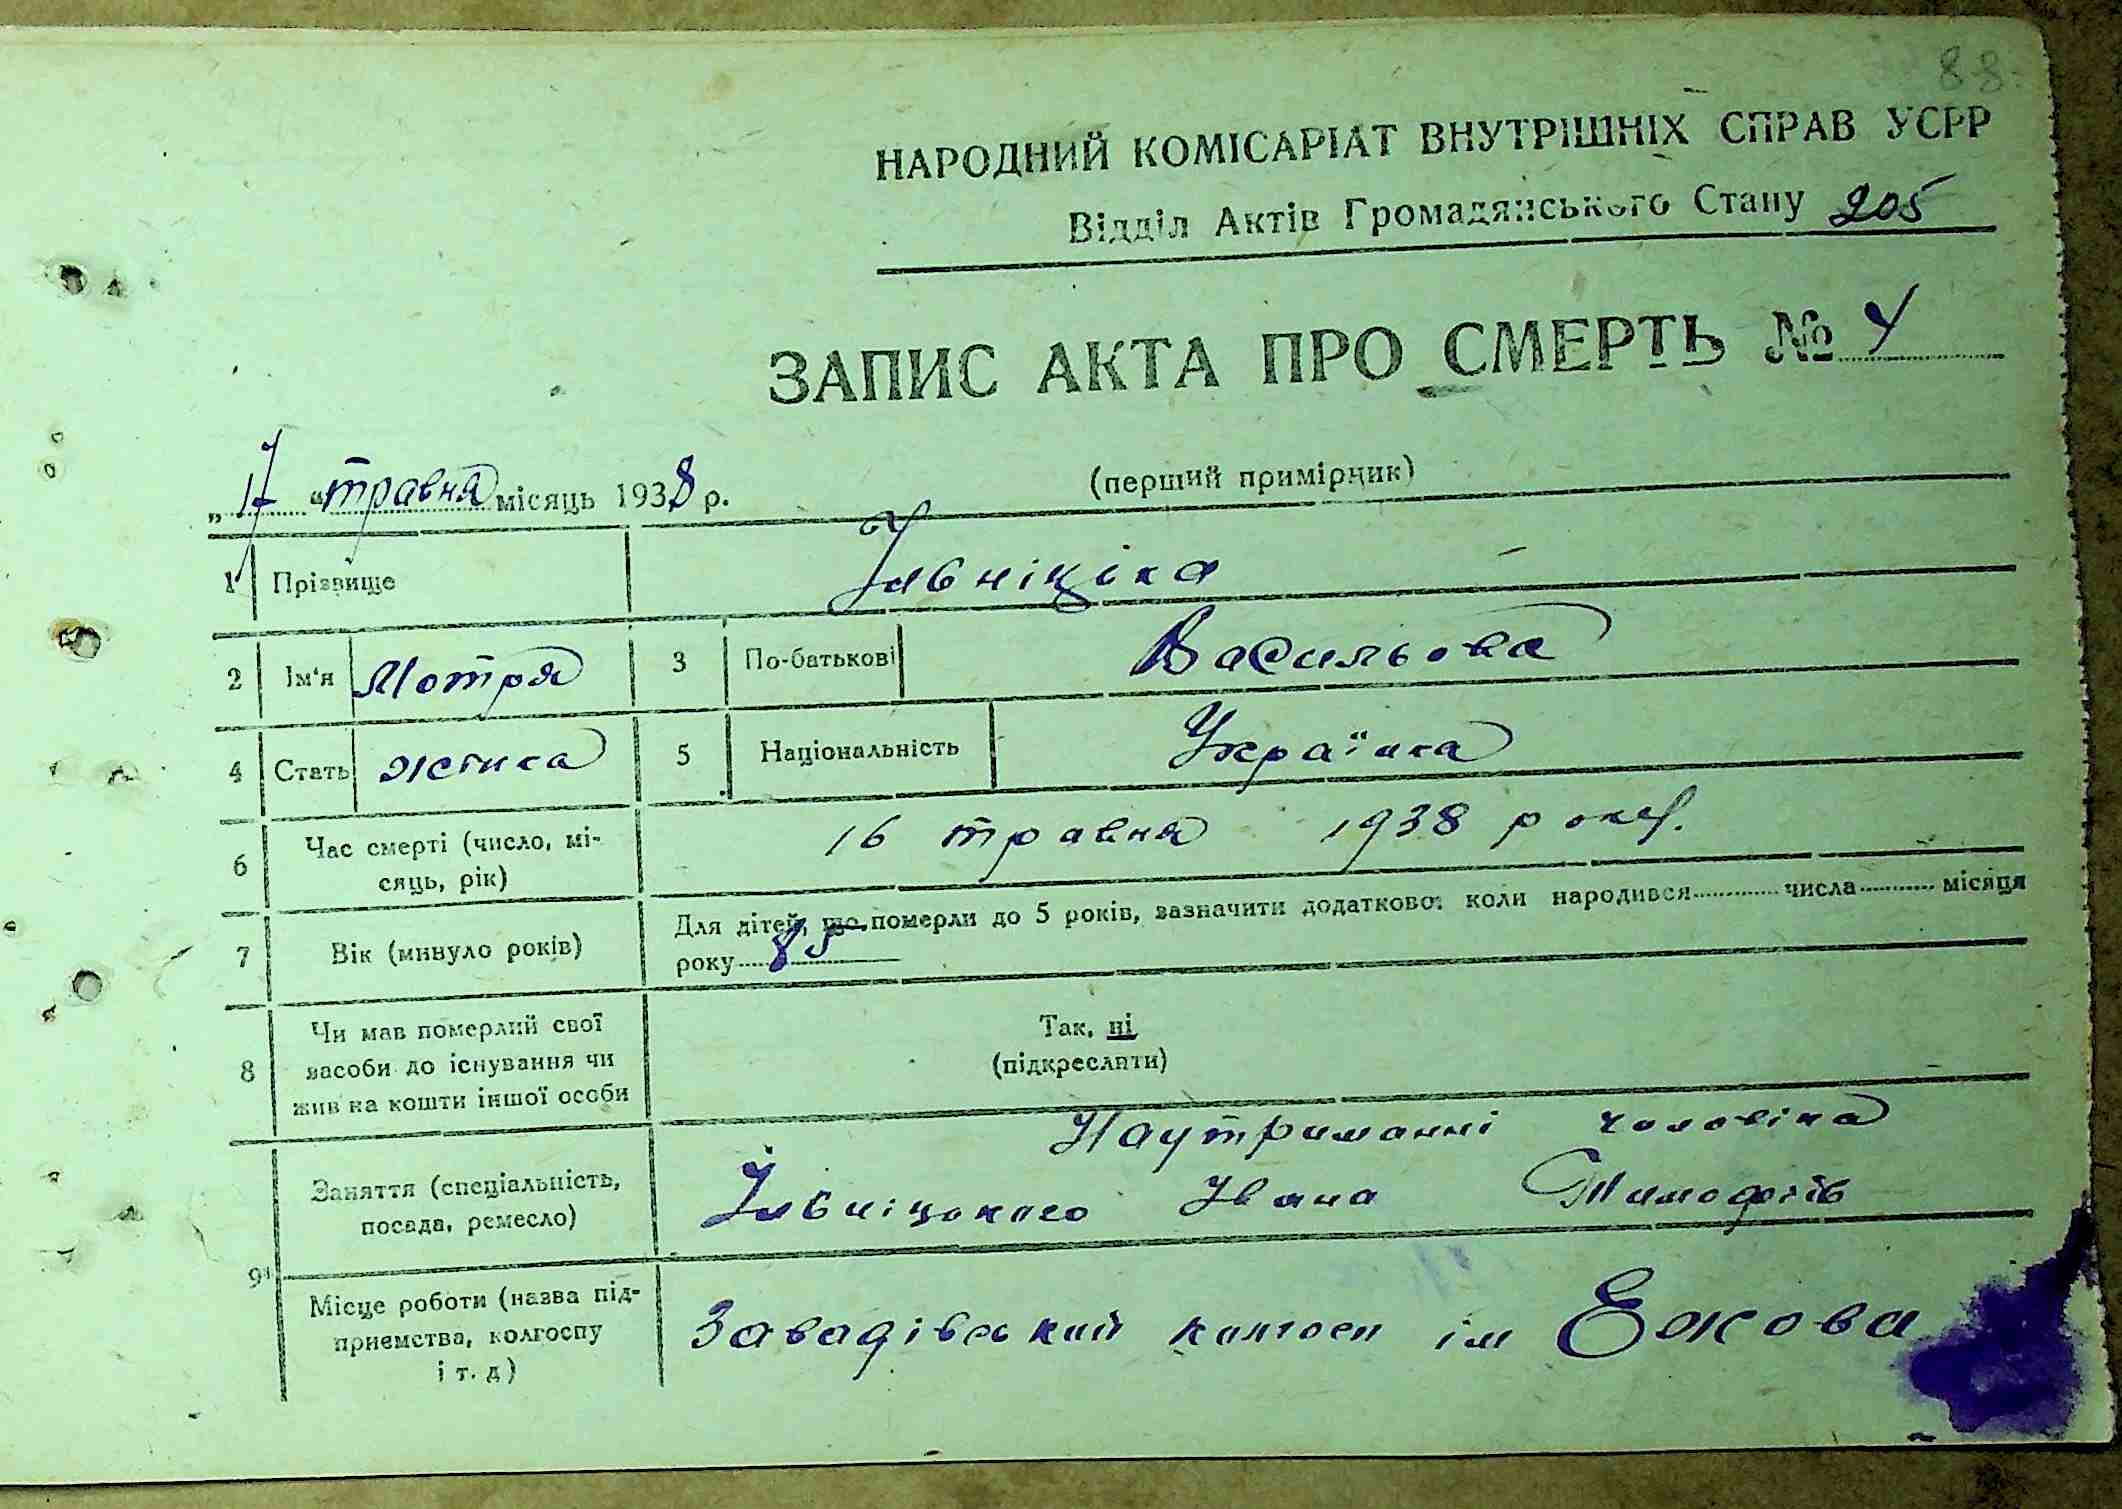 88.
НАРОДНИЙ КОМІСАРІАТ ВНУТРІШНІХ СПРАВ УСРР
Відділ Актів Громадянського Стану 205
ЗАПИС АКТА ПРО СМЕРТЬ № 4
„ 17 “ травня місяць 1938 р. (перший примірник)
1 Прізвище Івніцкіка
2 Ім'я Мотря 3 По-батькові Васильова
4 Стать жінка 5 Національність Українка
6 Час смерті (число, мі-
сяць, рік) 16 травня 1938 року.
7 Вік (минуло років) Для дітей, що померли до 5 років, зазначити додатково: коли народився числа місяця
року 85
8 Чи мав померлий свої
засоби до існування чи
жив на кошти іншої особи
Так, ні
(підкреслити)
9 Заняття (спеціальність,
посада, ремесло)
Наутриманні чоловіка
Івніцького Івана Тимофеїв
Місце роботи (назва під-
приємства, колгоспу
і т. д)
Завадівський колгосп ім Ежова